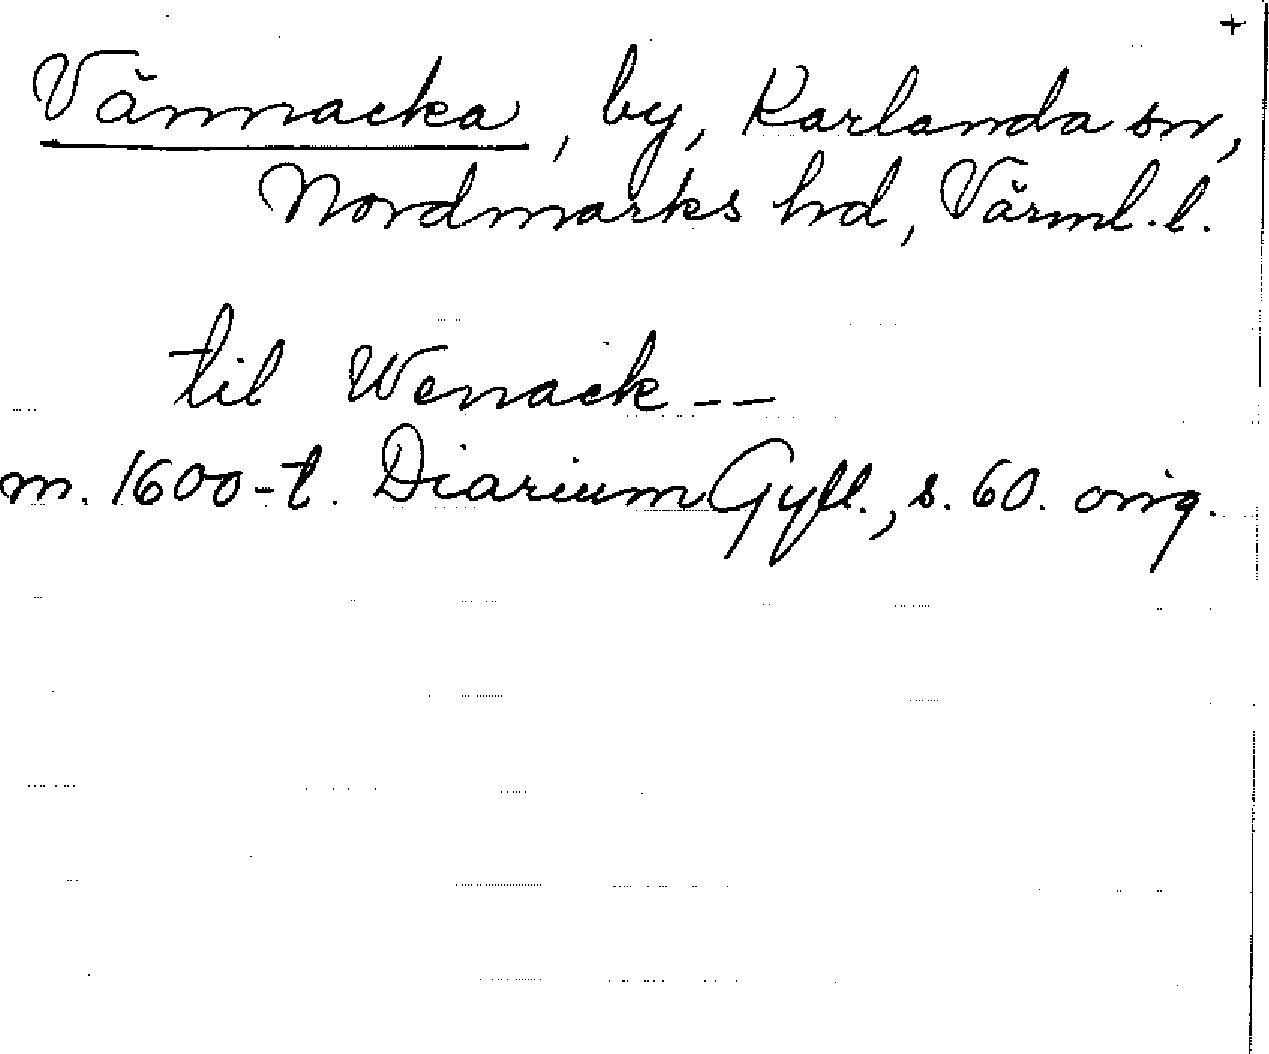 +
Vännacka, by, Karlanda sn,
Nordmarks hd, Värml. l.
til Wenack--
m. 1600-t. Diarium Gyll., s. 60. orig.